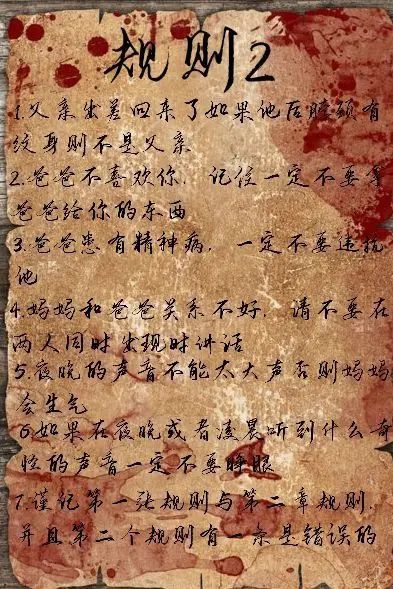 规则2
1.父亲出差回来了如果他后脖颈有
纹身则不是父亲
2.爸爸不喜欢你，记住一定不要拿
爸爸给你的东西
3.爸爸患有精神病，一定不要违抗
他
4.妈妈和爸爸关系不好，请不要在
两人同时出现时讲话
5.夜晚的声音不能太大声否则妈妈
会生气
6.如果在夜晚或者凌晨听到什么奇
怪的声音一定不要睁眼
7.谨记第一张规则与第二章规则，
并且第二个规则有一条是错误的